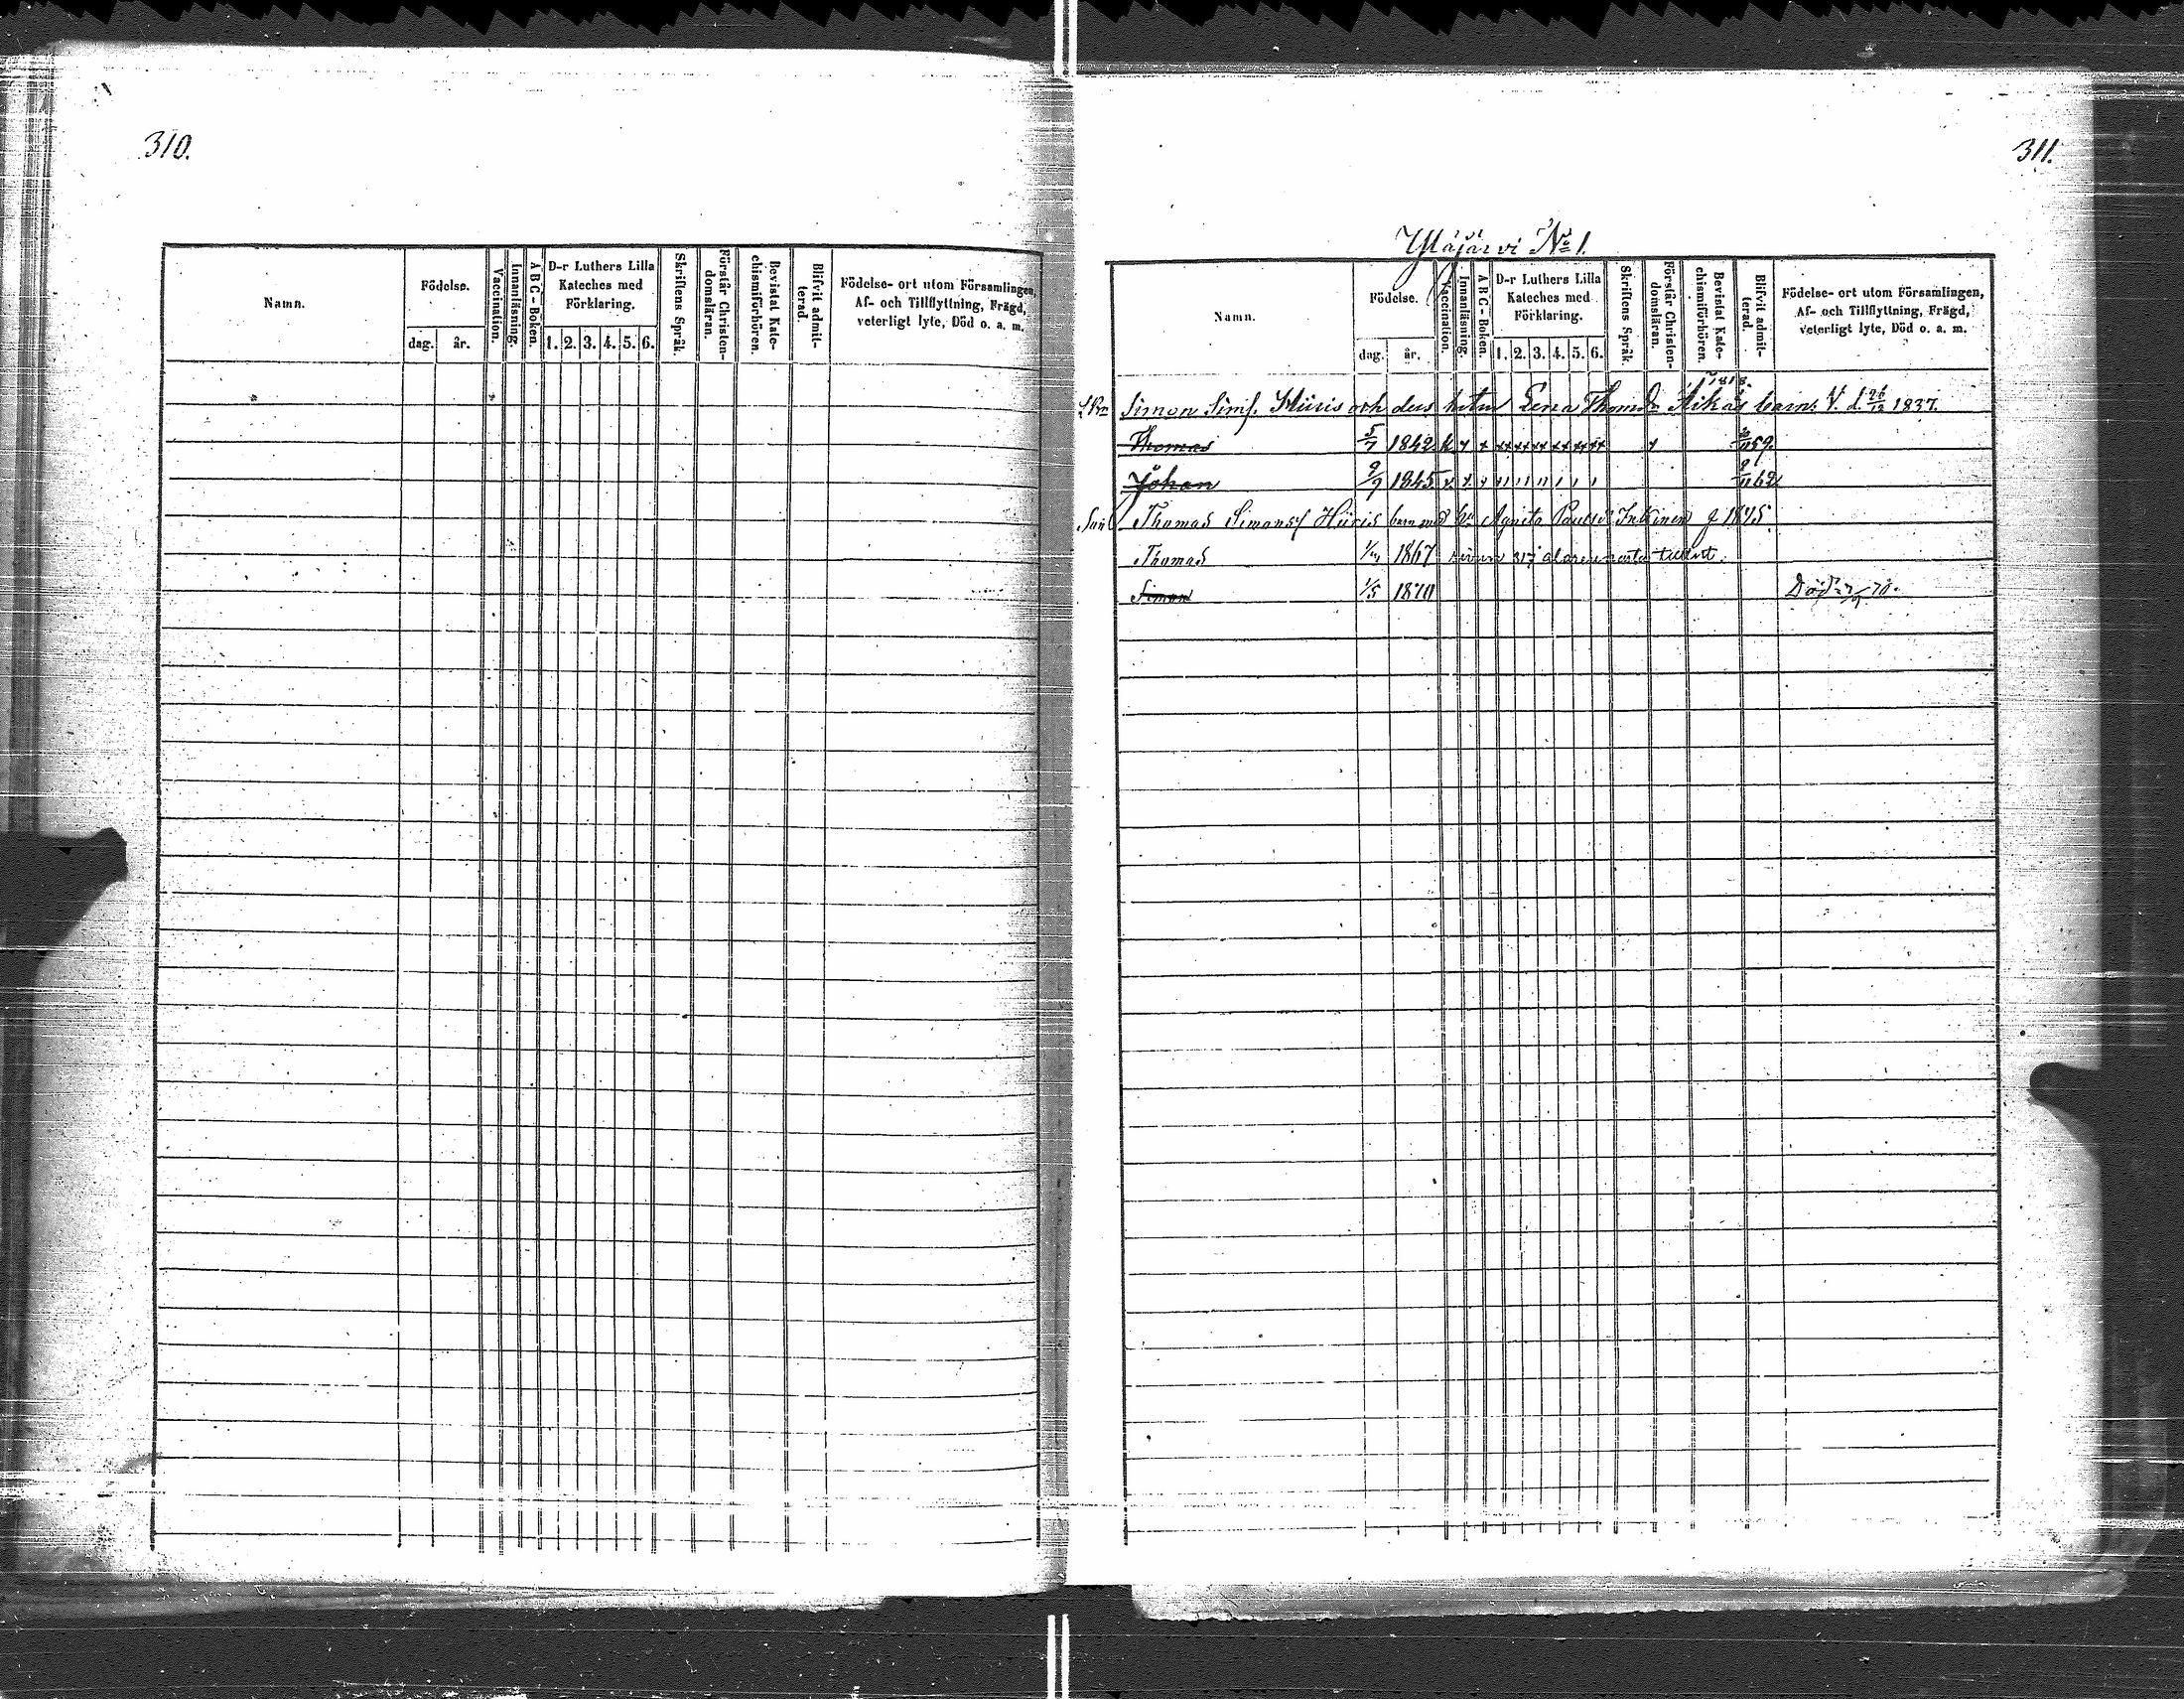 310.
Namn.
Födelse.
dag.
år.
Vaccination.
Innanläsning.
A B C - Boken.
D-r Luthers Lilla
Kateches med
Förklaring.
1. 2. 3. 4. 5. 6.
Skriftens Språk.
Förstår Christen-
domsläran.
Bevistat Kate-
chismiförhören.
Blifvit admit-
terad.
Födelse- ort utom Församlingen,
Af- och Tillflyttning, Frägd,
veterligt lyte, Död o. a. m.
311.
Yläjärvi No 1.
Namn.
Födelse.
dag.
år.
Vaccination.
Innanläsning.
A B C - Boken.
D-r Luthers Lilla
Kateches med
Förklaring.
1. 2. 3. 4. 5. 6.
Skriftens Språk
Förstår Christen-
domsläran.
Bevistat Kate-
chismiförhören.
Blifvit admit-
terad.
Födelse- ort utom Församlingen,
Af- och Tillflyttning, Frägd,
veterligt lyte, Död o. a. m.
Simon Simf. och des Lena Thomd: barn. V. d. 26/12 1837.
Thomas 5/7 1842 59.
Johan 9/9 1845 62
Thomas Simonsf Hüris barn med Agneta Inkinen 1845
Thomas 1867 317
Simon 1/5 1870 Död 70.